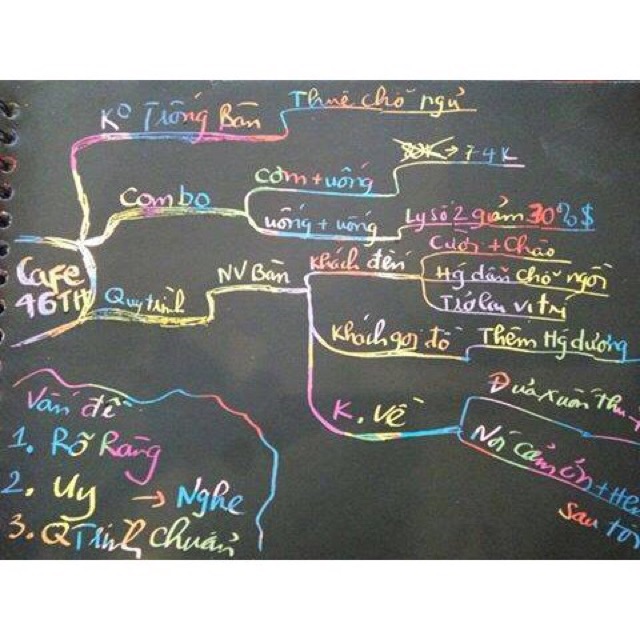 K° Trống Bàn
Thuê chỗ ngủ
Combo
Cơm + uống
80K → 74K
uống + uống
Ly số 2 giảm 30% $
Cafe
46TH
Quy trình
NV Bàn
Khách đến
Cười + Chào
Hg dẫn chỗ ngồi
Trở lại vị trí
Khách gọi đồ
Thêm Hg dương
K. Về
Đưa xuốn thu
Nói Cảm ơn + Hẹn
sau tới
Vấn đề
1. Rõ Ràng
2. Uy → Nghe
3. QTrình chuẩn